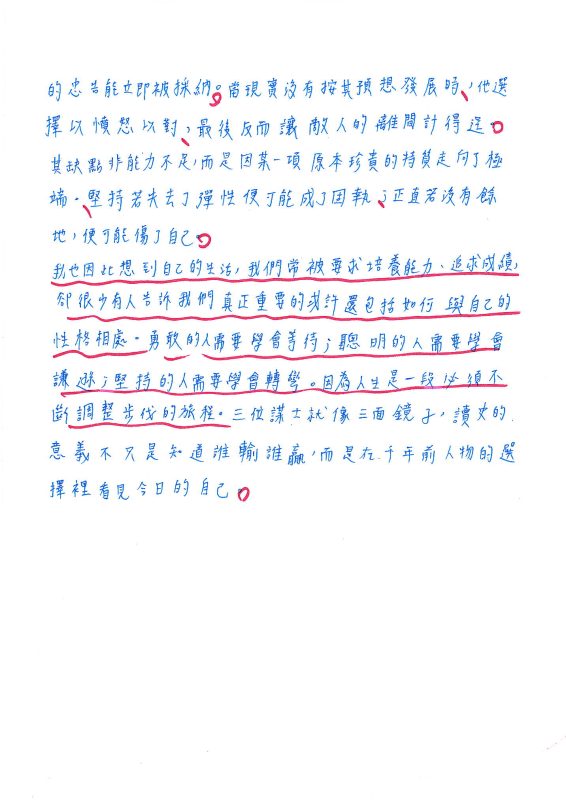 的忠告能立即被採納。當現實沒有按其預想發展時，他選
擇以憤怒以對，最後反而讓敵人的離間計得逞。
其缺點非能力不足，而是因某一項原本珍貴的特質走向了極
端。堅持若失去了彈性便可能成了固執；正直若沒有餘
地，便可能傷了自己。
我也因此想到自己的生活，我們常被要求培養能力、追求成績，
卻很少有人告訴我們真正重要的或許還包括如何與自己的
性格相處。勇敢的人需要學會等待；聰明的人需要學會
謙遜；堅持的人需要學會轉彎。因為人生是一段必須不
斷調整步伐的旅程。三位謀士就像三面鏡子，讀史的
意義不只是知道誰輸誰贏，而是在千年前人物的選
擇裡看見今日的自己。